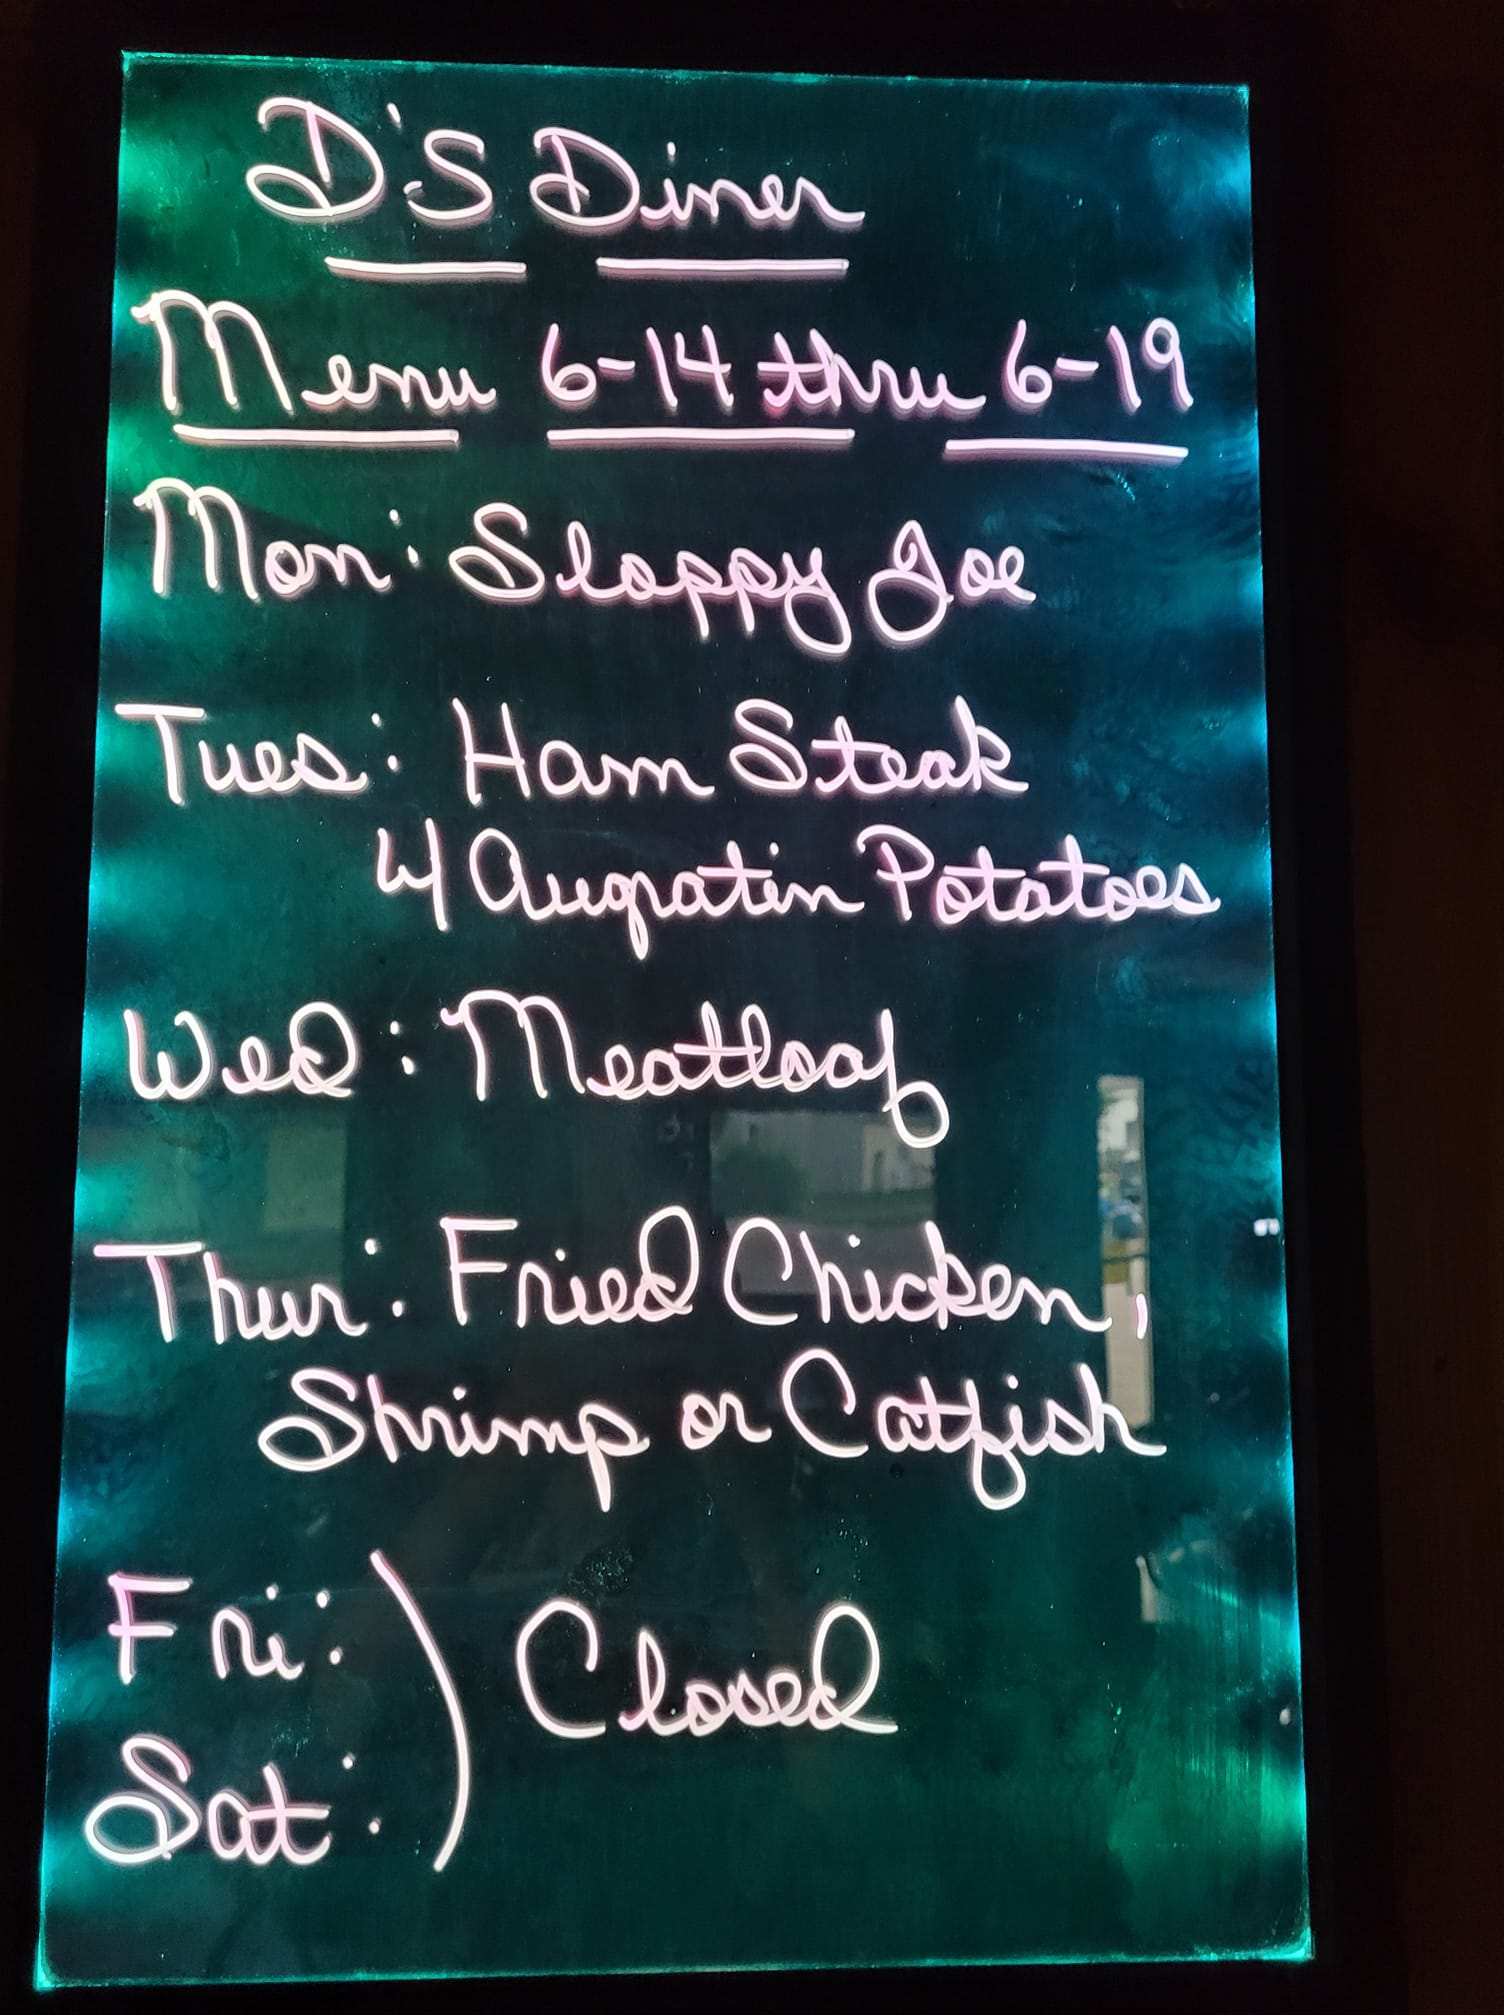 D'S Diner
Menu 6-14 thru 6-19
Mon: Sloppy Joe
Tues: Ham Steak
w/ Augratin Potatoes
Wed: Meatloaf
Thur: Fried Chicken,
Shrimp or Catfish
Fri:
Closed
Sat: